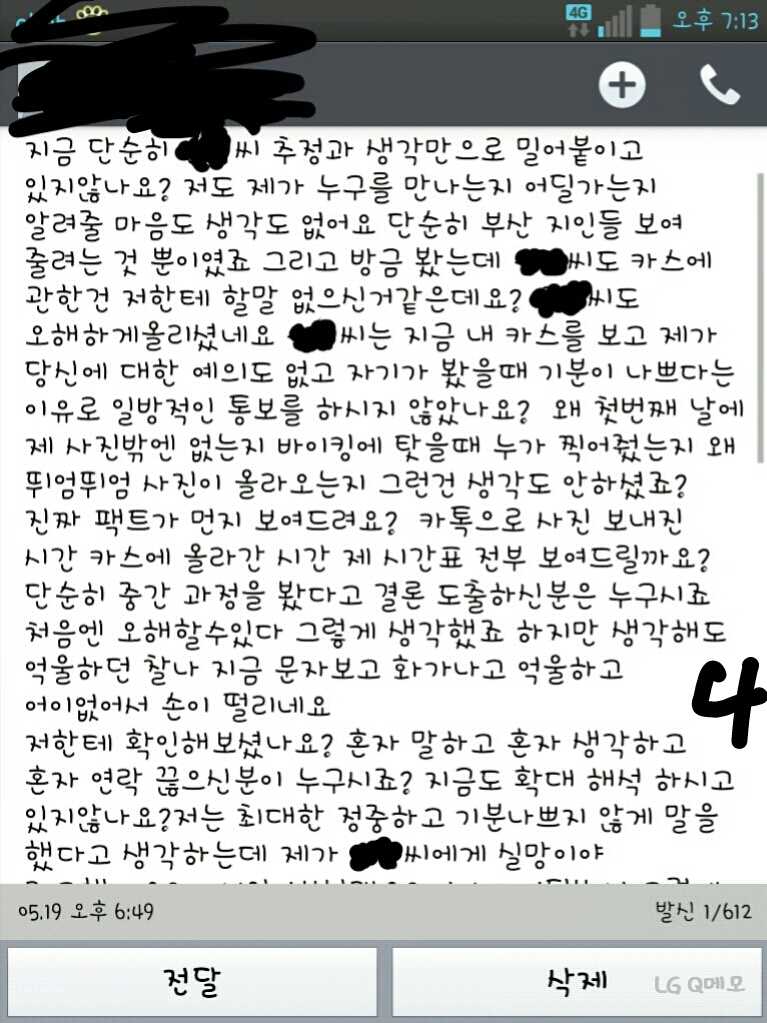 4G 오후 7:13
지금 단순히 씨 추정과 생각만으로 밀어붙이고
있지않나요? 저도 제가 누구를 만나는지 어딜가는지
알려줄 마음도 생각도 없어요 단순히 부산 지인들 보여
줄려는 것 뿐이였죠 그리고 방금 봤는데 씨도 카스에
관한건 저한테 할말 없으신거같은데요? 씨도
오해하게올리셨네요 씨는 지금 내 카스를 보고 제가
당신에 대한 예의도 없고 자기가 봤을때 기분이 나쁘다는
이유로 일방적인 통보를 하시지 않았나요? 왜 첫번째 날에
제 사진밖엔 없는지 바이킹에 탓을때 누가 찍어줬는지 왜
뛰엄뛰엄 사진이 올라오는지 그런건 생각도 안하셨죠?
진짜 팩트가 먼지 보여드려요? 카톡으로 사진 보내진
시간 카스에 올라간 시간 제 시간표 전부 보여드릴까요?
단순히 중간 과정을 봤다고 결론 도출하신분은 누구시죠
처음엔 오해할수있다 그렇게 생각했죠 하지만 생각해도
억울하던 찰나 지금 문자보고 화가나고 억울하고
어이없어서 손이 떨리네요
4
저한테 확인해보셨나요? 혼자 말하고 혼자 생각하고
혼자 연락 끊으신분이 누구시죠? 지금도 확대 해석 하시고
있지않나요?저는 최대한 정중하고 기분나쁘지 않게 말을
했다고 생각하는데 제가 씨에게 실망이야
05.19 오후 6:49 발신 1/612
전달 삭제
LG Q메모